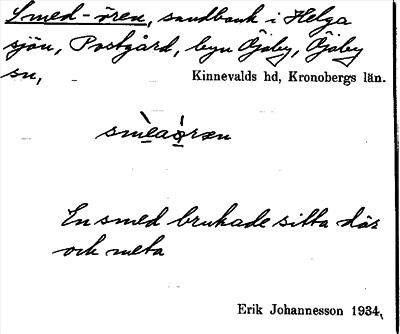 Smed-ören, sandbank i Helga
sjön, Postgård, byn Öjaby, Öjaby
sn,
Kinnevalds hd, Kronobergs län.
smèaòrən
En smed brukade sitta där
och meta
Erik Johannesson 1934.